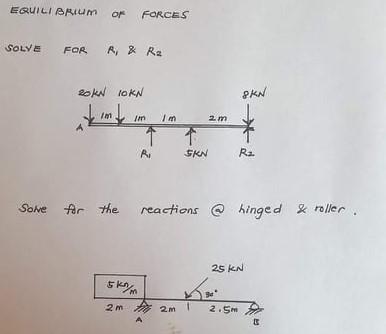 EQUILIBRIUM OF FORCES
SOLVE FOR R1 & R2
20KN 10KN 8KN
1m 1m 1m 2m
A
R1 5KN R2
Solve for the reactions @ hinged & roller.
25 KN
5 KN/m 30°
2m 2m 2.5m
A B